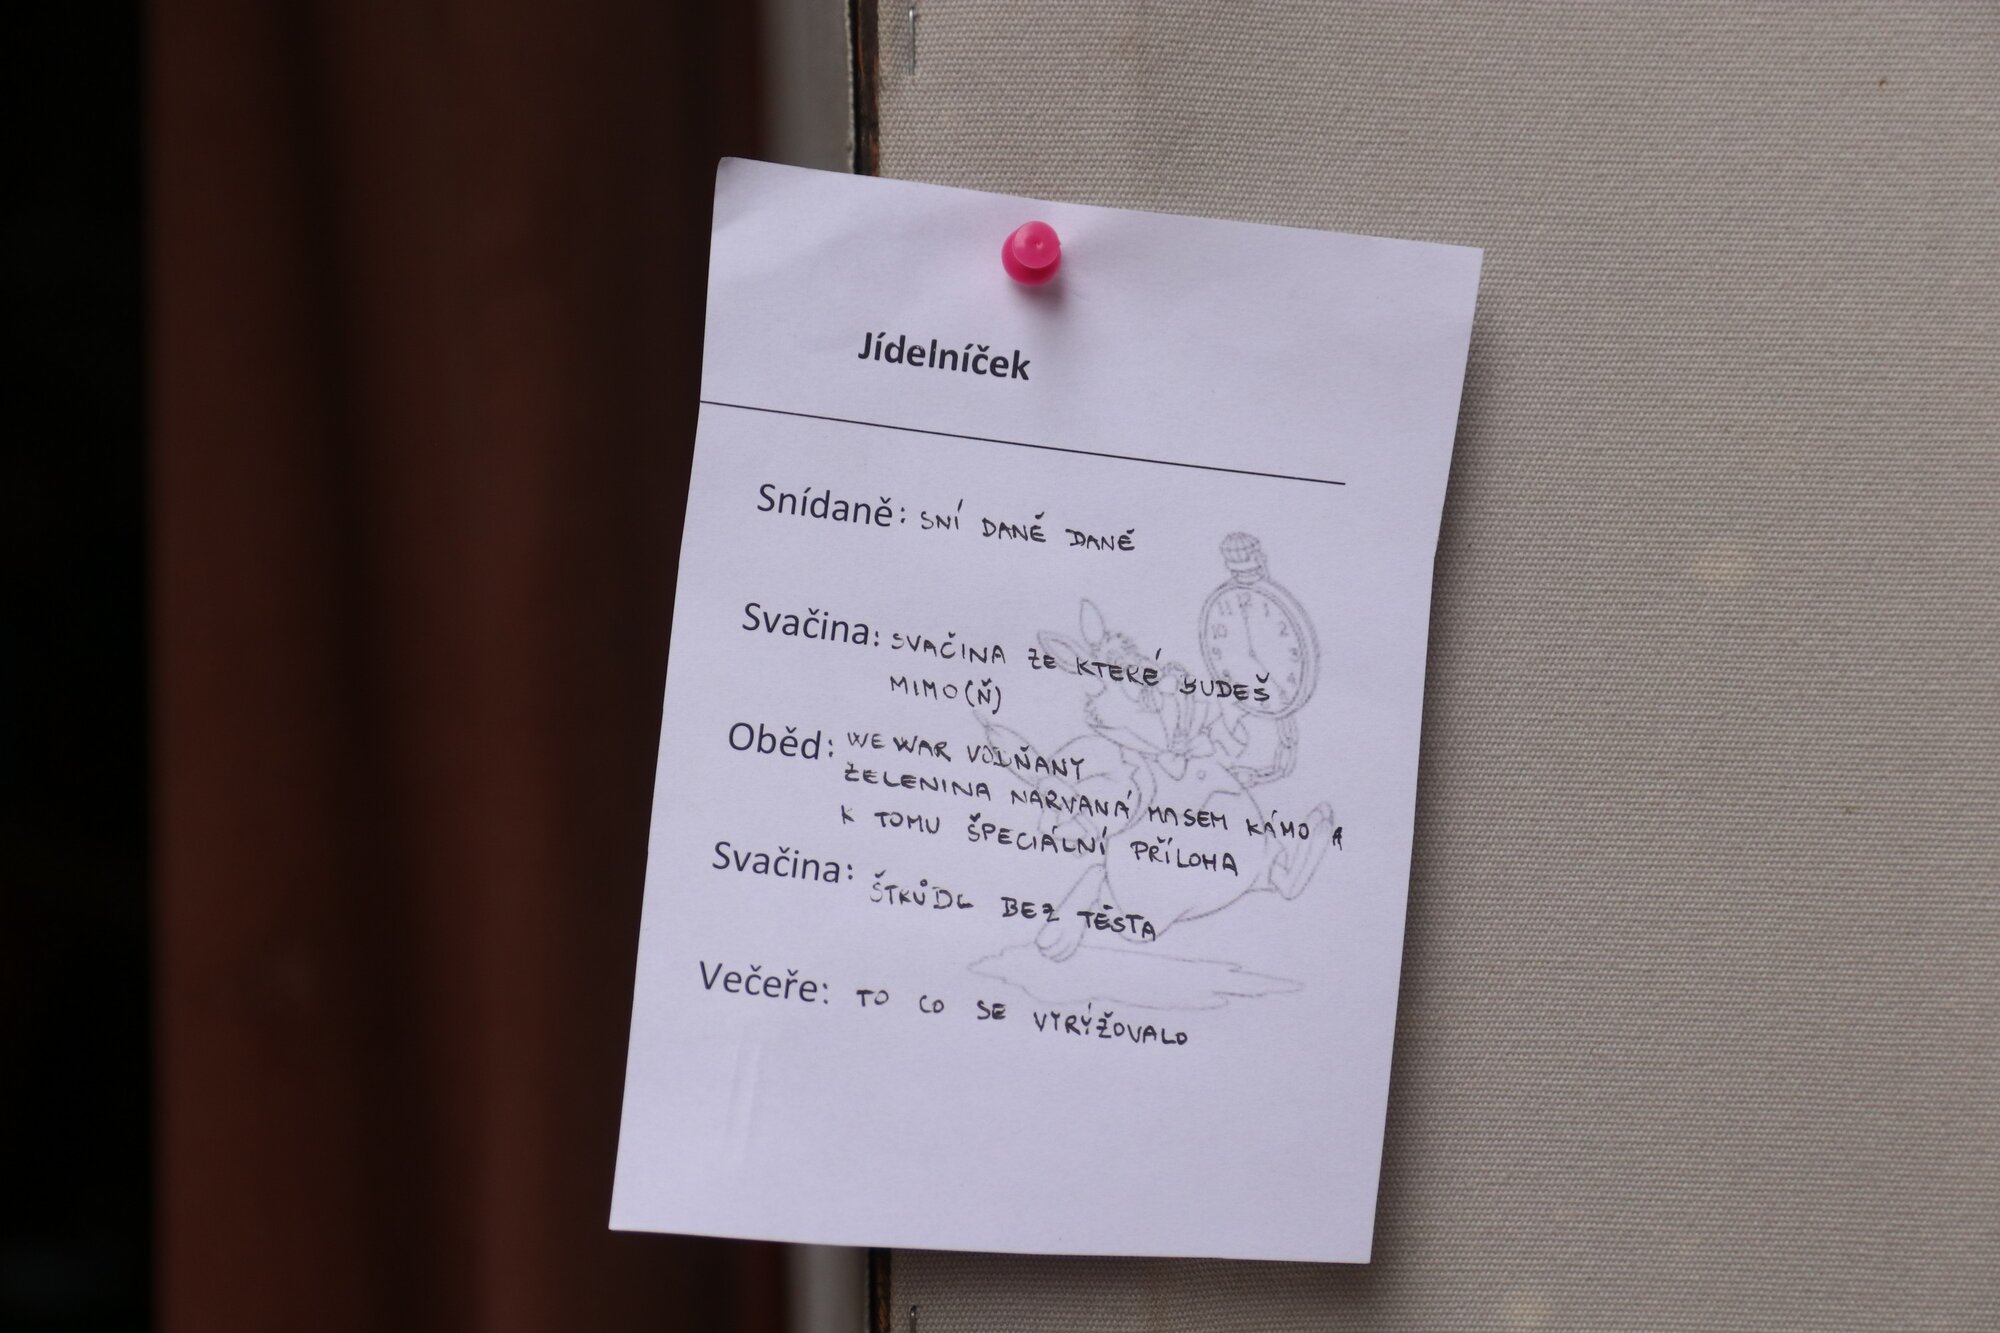 Jídelníček
Snídaně: SNÍ DANĚ DANĚ
Svačina: SVAČINA ZE KTERÉ BUDEŠ
MIMO(Ň)
Oběd: WE WAR VOLŇANÝ
ZELENINA NARVANÁ MASEM KÁMO A
K TOMU ŠPECIÁLNÍ PŘÍLOHA
Svačina: ŠTRŮDL BEZ TĚSTA
Večeře: TO CO SE VYRÝŽOVALO
12
11
1
10
2
3
4